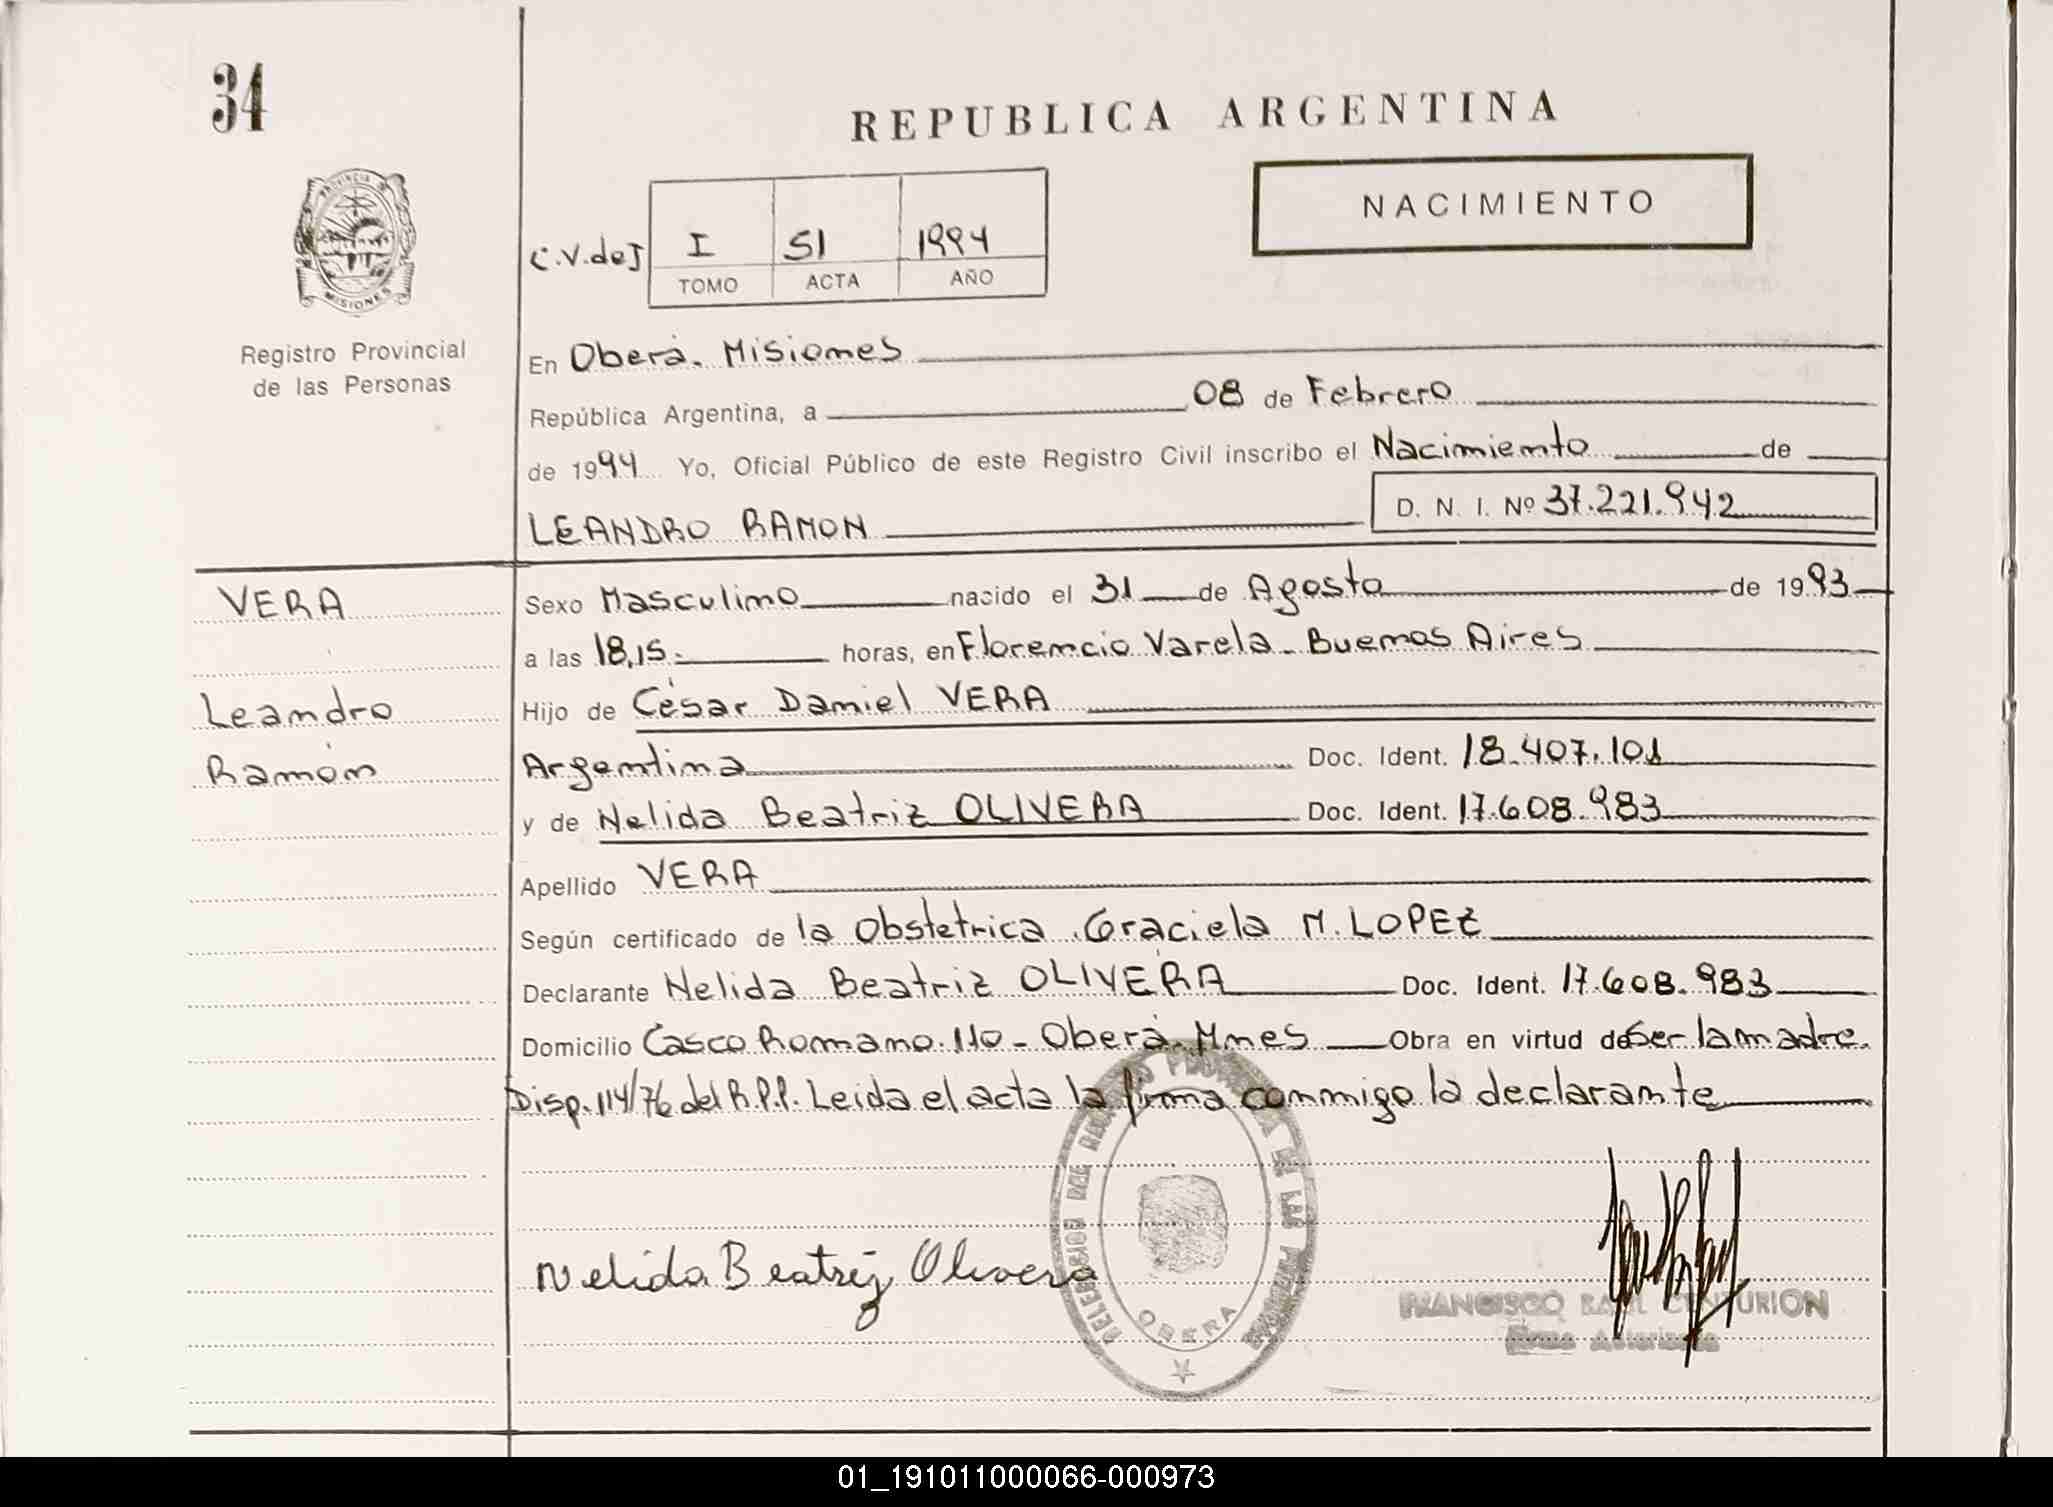 34
REPUBLICA ARGENTINA
NACIMIENTO
C.V.deJ I 51 1994
TOMO ACTA AÑO
PROVINCIA DE
MISIONES
Registro Provincial
de las Personas
En Oberá. Misiones
República Argentina, a 08 de Febrero
de 1994 Yo, Oficial Público de este Registro Civil inscribo el Nacimiento de
LEANDRO RAMON D. N. I. Nº 37.221.942
VERA
Leandro
Ramón
Sexo Masculino nacido el 31 de Agosto de 1993
a las 18,15. horas, en Florencio Varela. Buenos Aires
Hijo de César Daniel VERA
Argentina Doc. Ident. 18.407.101
y de Nelida Beatriz OLIVERA Doc. Ident. 17.608.983
Apellido VERA
Según certificado de la Obstetrica Graciela M. LOPEZ
Declarante Nelida Beatriz OLIVERA Doc. Ident. 17.608.983
Domicilio Casco Romano 110 - Oberá. Mnes Obra en virtud de Ser la madre.
Disp. 114/76 del R.P.P. Leida el acta la firma conmigo la declarante
Nelida Beatriz Olivera
DELEGACION DEL REGISTRO PROVINCIAL DE LAS PERSONAS
OBERA
FRANCISCO RAUL CENTURION
Firma Autorizada
01_191011000066-000973